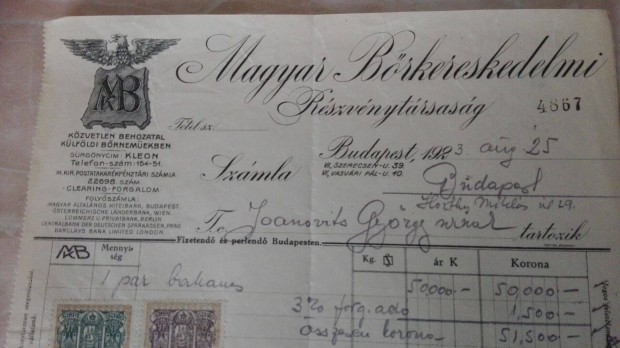 MKB
Magyar Bőrkereskedelmi
Részvénytársaság
4867
KÖZVETLEN BEHOZATAL
KÜLFÖLDI BŐRNEMÜEKBEN
SÜRGÖNYCIM: KLEON
Telefon-szám: 164-51.
M. KIR. POSTATAKARÉKPÉNZTÁRI SZÁMLA
22698. SZÁM.
CLEARING-FORGALOM
FOLYÓSZÁMLA:
MAGYAR ÁLTALÁNOS HITELBANK, BUDAPEST.
ÖSTERREICHISCHE LÄNDERBANK, WIEN.
COMMERZ U. PRIVATBANK, BERLIN
CENTRALBANK DER DEUTSCHEN SPARKASSEN, PRAG
BARCLAYS BANK LIMITED LONDON.
Tétel sz.
Számla
Budapest, 1923 aug 25
VI, SZERECSEN-U. 39.
VI, VASVÁRI PÁL-U. 10.
Budapest
Horthy Miklós út 29.
T. c. Joanovits György urnak tartozik
Fizetendő és perlendő Budapesten.
MKB
Mennyiség
Kg.
ár K
Korona
1 pár bakancs
50,000 —
50,000 —
3% forg. adó
1,500 —
Összesen korona
51,500 —